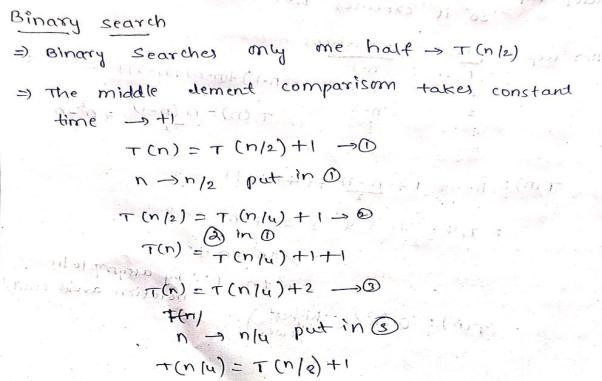 Binary search
⇒ Binary Searches only one half → T(n/2)
⇒ The middle element comparisom takes constant
time → +1
T(n) = T(n/2)+1 →①
n → n/2 put in ①
T(n/2) = T(n/4)+1 → ②
② in ①
T(n) = T(n/4)+1+1
T(n) = T(n/4)+2 →③
T(n)
n → n/4 put in ③
T(n/4) = T(n/8)+1